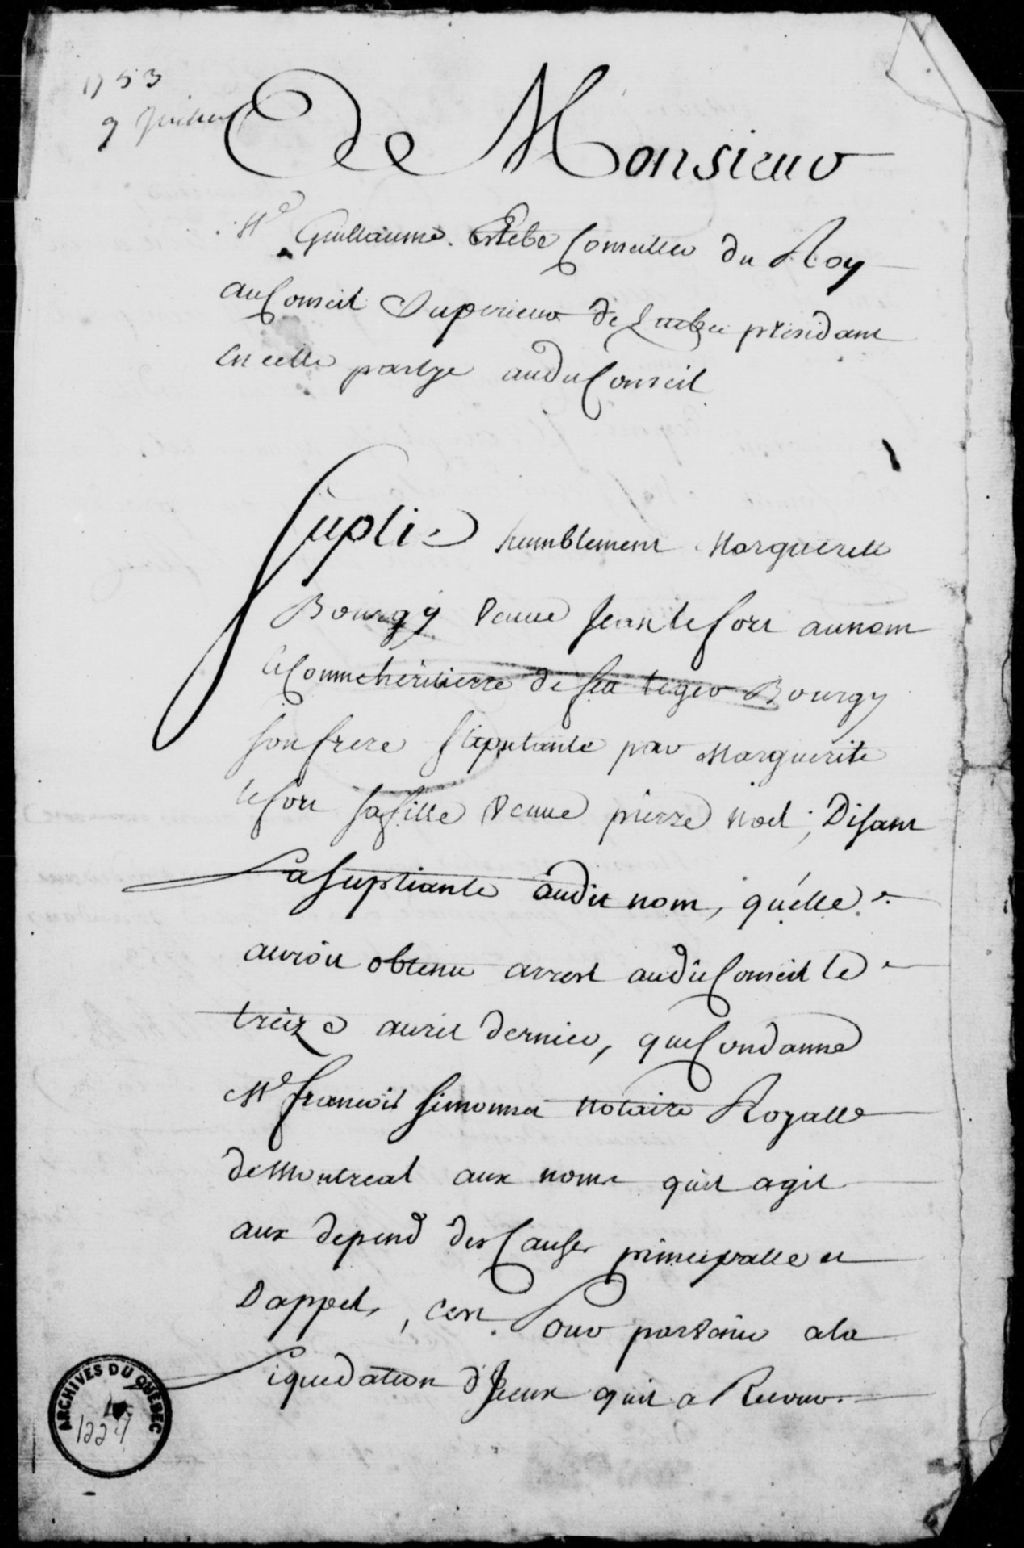 1753
9 Juillet
De Monsieur
Me Guillaume Estebe Conseiller du Roy
au Conseil Superieur de Quebec présidant
En cette partye audit Conseil
Suplie humblement Marguerite
Bourgy Veuve Jean le fort au nom
Et Comme héritierre de feu leger Bourgy
son frere stipulante par Marguerite
lefort sa fille Veuve pierre noel ; Disant
La supliante audit nom, qu'elle
auroit obtenu arrest audit Conseil le
treize avril dernier, qui Condanne
Me francois simonnet notaire Royalle
de Montreal aux noms qu'il agit
aux depend des Causes principalle et
Dappel, cest Pour parvenir a la
Liquidation d'Iceux qu'il a Recours
ARCHIVES DU QUÉBEC